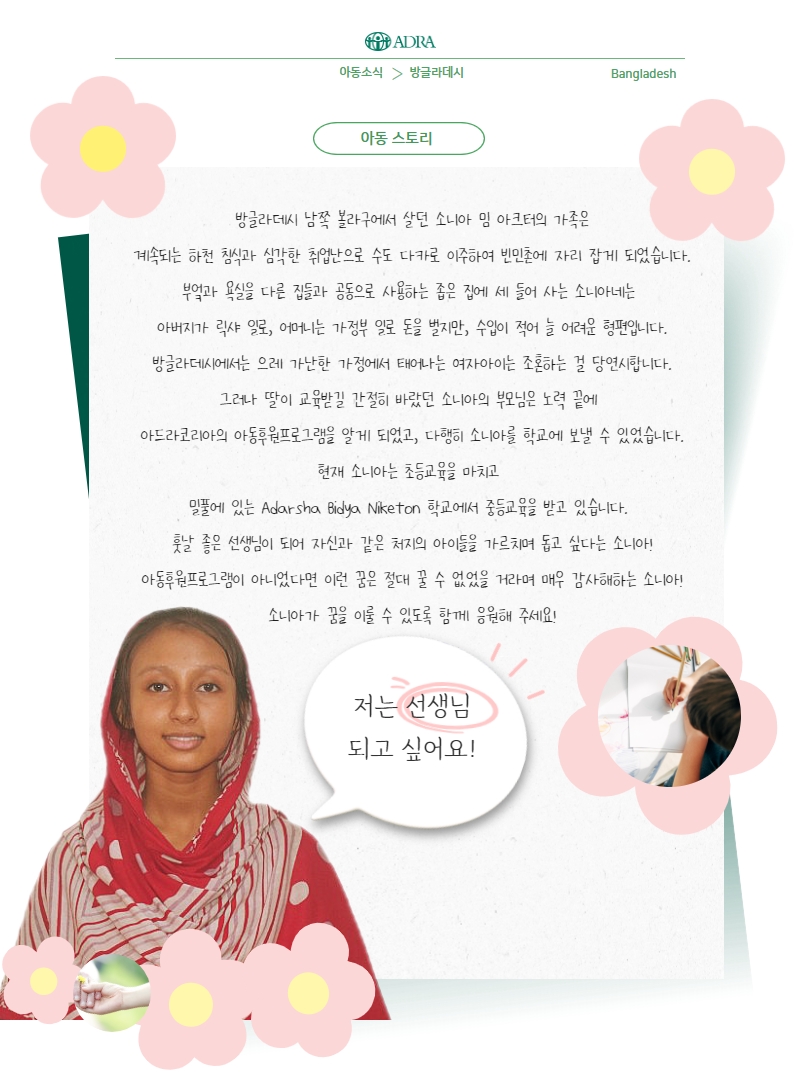 ADRA
아동소식 > 방글라데시
Bangladesh
아동 스토리
방글라데시 남쪽 볼라구에서 살던 소니아 밈 아크터의 가족은
계속되는 하천 침식과 심각한 취업난으로 수도 다카로 이주하여 빈민촌에 자리 잡게 되었습니다.
부엌과 욕실을 다른 집들과 공동으로 사용하는 좁은 집에 세 들어 사는 소니아네는
아버지가 릭샤 일로, 어머니는 가정부 일로 돈을 벌지만, 수입이 적어 늘 어려운 형편입니다.
방글라데시에서는 으레 가난한 가정에서 태어나는 여자아이는 조혼하는 걸 당연시합니다.
그러나 딸이 교육받길 간절히 바랐던 소니아의 부모님은 노력 끝에
아드라코리아의 아동후원프로그램을 알게 되었고, 다행히 소니아를 학교에 보낼 수 있었습니다.
현재 소니아는 초등교육을 마치고
밀풀에 있는 Adarsha Bidya Niketon 학교에서 중등교육을 받고 있습니다.
훗날 좋은 선생님이 되어 자신과 같은 처지의 아이들을 가르치며 돕고 싶다는 소니아!
아동후원프로그램이 아니었다면 이런 꿈은 절대 꿀 수 없었을 거라며 매우 감사해하는 소니아!
소니아가 꿈을 이룰 수 있도록 함께 응원해 주세요!
저는 선생님
되고 싶어요!